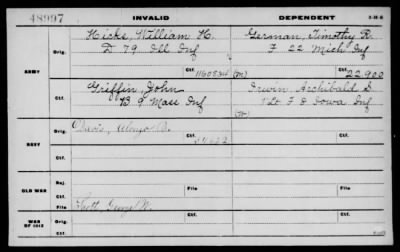 48997 INVALID DEPENDENT 3-16-6
Hicks, William H. German, Timothy R.
Orig. D 79 Ill Inf F 22 Mich Inf
ARMY Ctf. 1160834 (M) Ctf. 22900
Griffin, John Irwin, Archibald S.
Ctf. B 9 Mass Inf 1 Lt. F 8 Iowa Inf
(W)
Orig. Davis, Alonzo B. Orig.
Ctf.
NAVY
Ctf. Ctf.
Rej.
OLD WAR File File
Ctf.
Orig. Scott, George W. Orig.
WAR OF 1812
Ctf. Ctf.